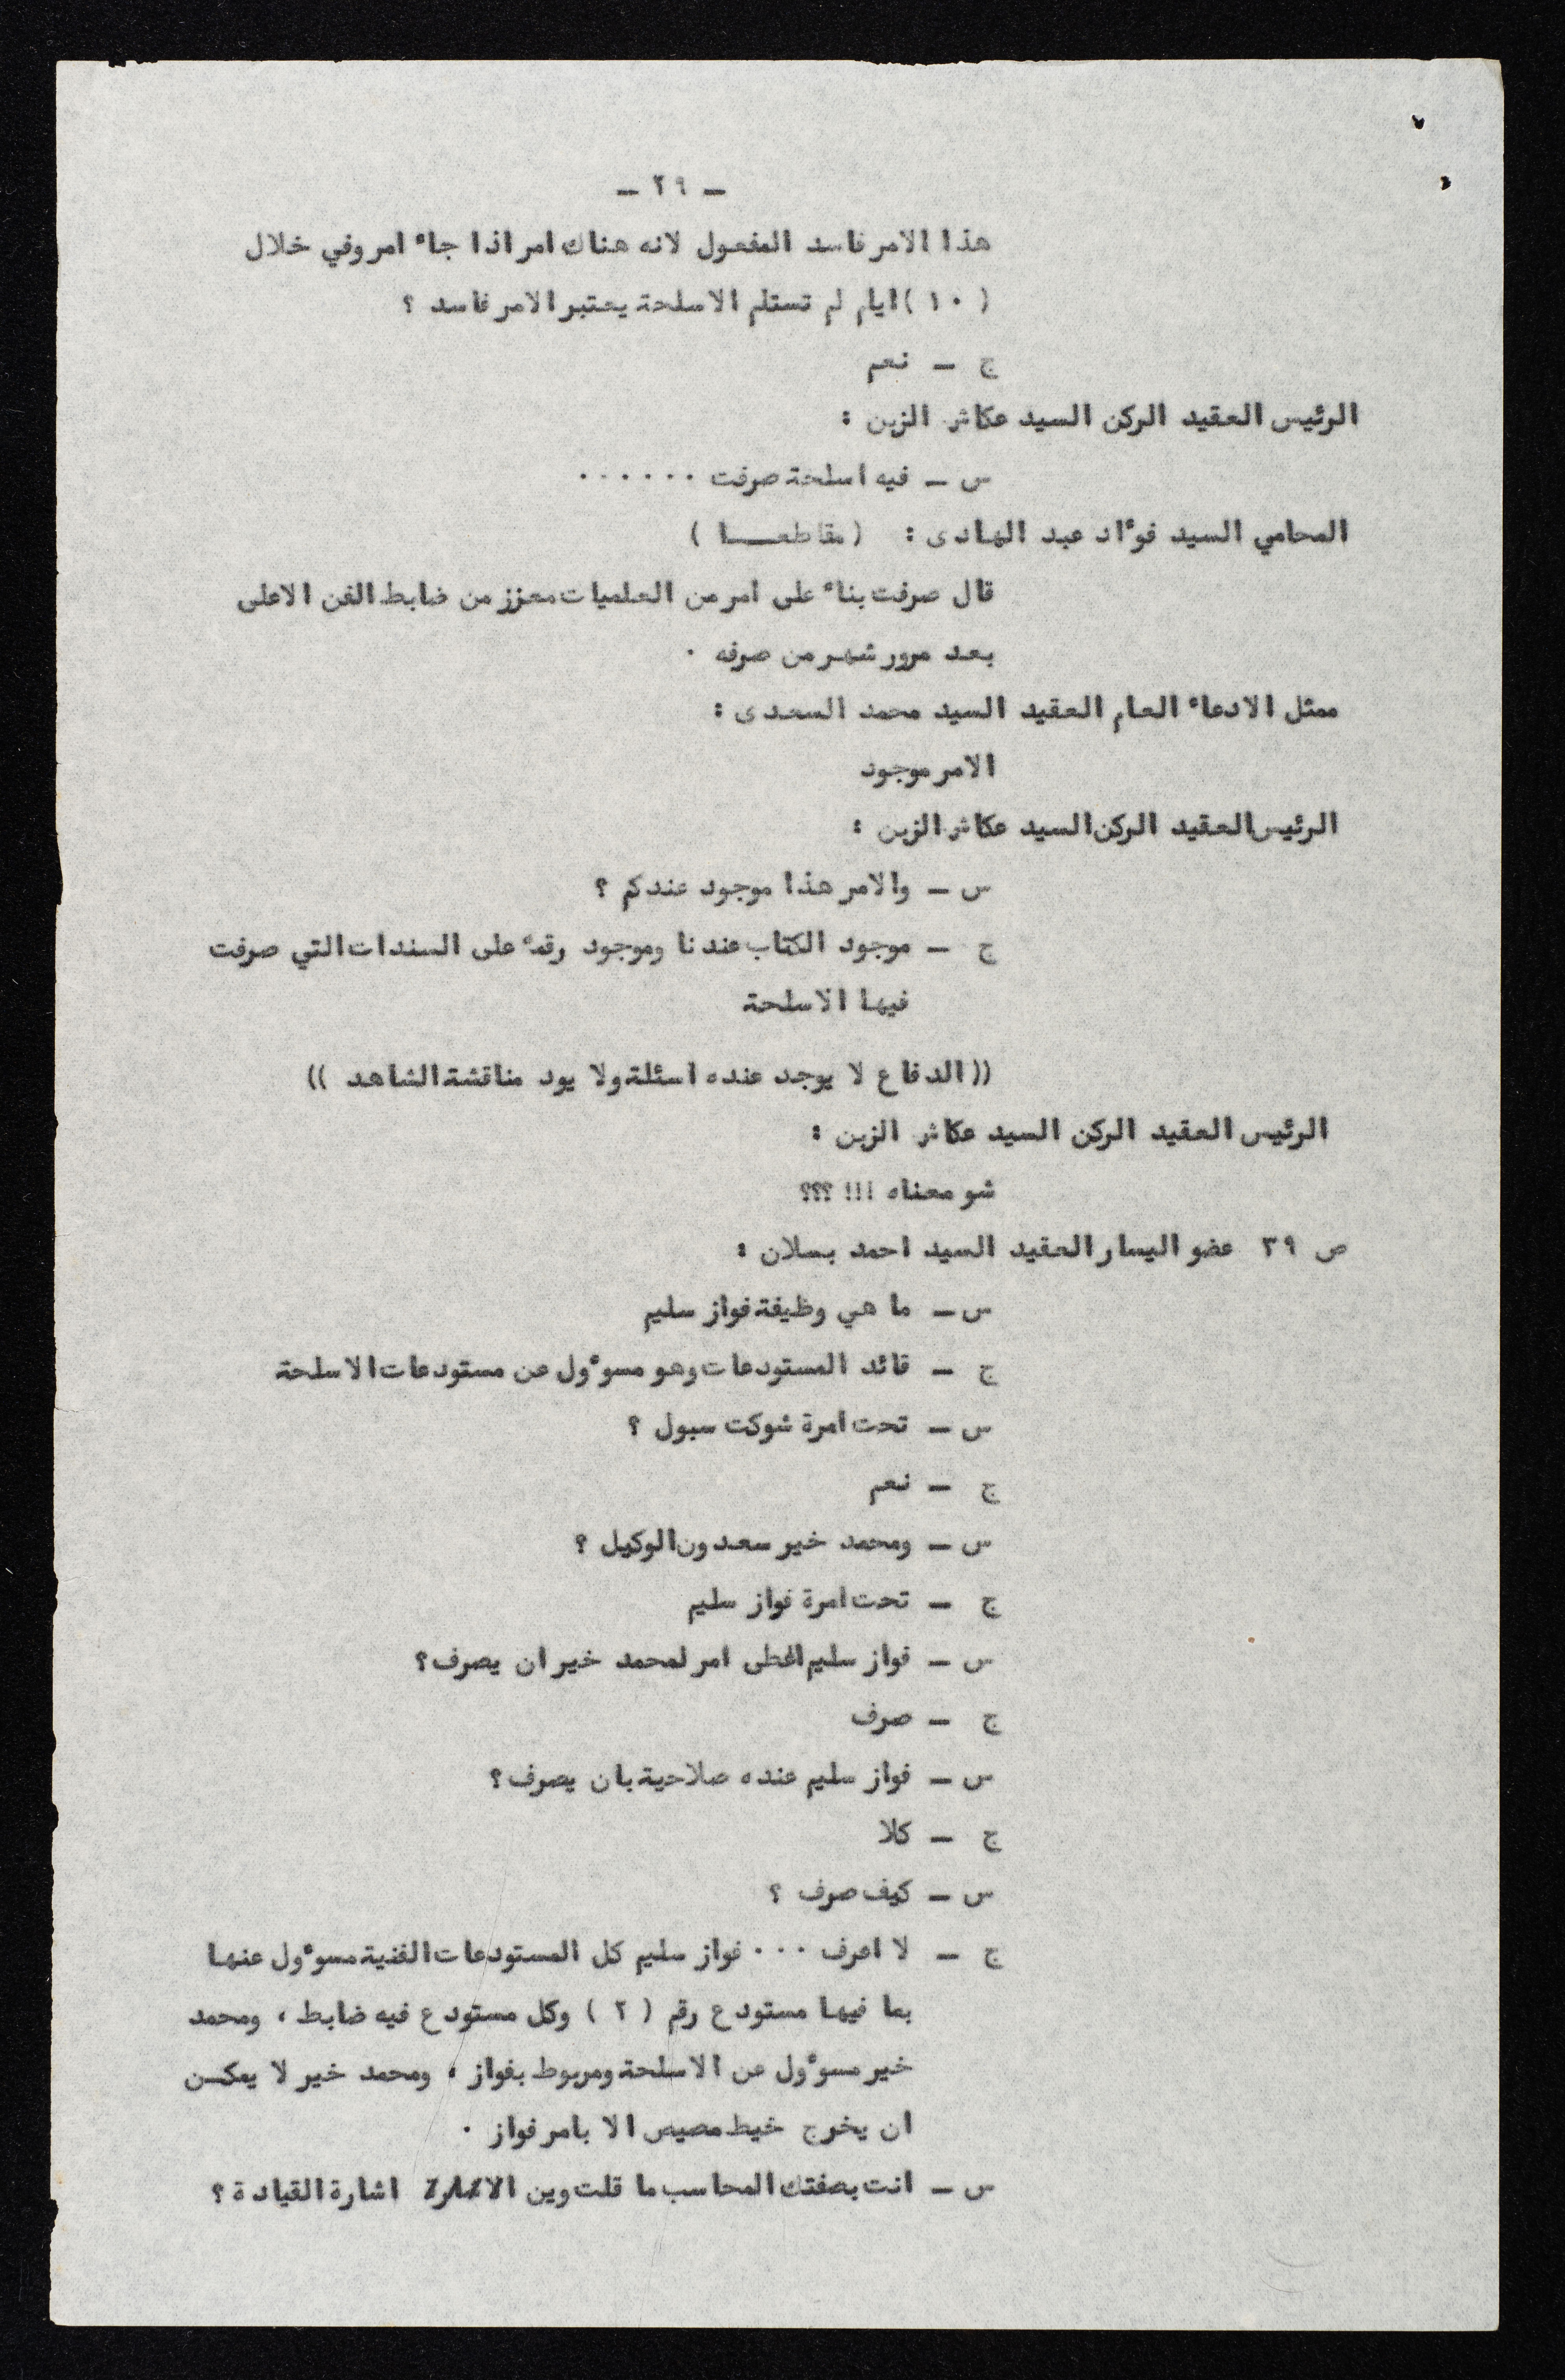 — ٢٩ —
هذا الامر فاسد المفعول لانه هناك امر اذا جاء امر وفي خلال
( ١٠ ) ايام لم تستلم الاسلحة يعتبر الامر فاسد ؟
ج — نعم
الرئيس العقيد الركن السيد عكاش الزبن :
س — فيه اسلحة صرفت ٠٠٠٠٠٠
المحامي السيد فوءاد عبد الهادى : ( مقاطعـــا )
قال صرفت بناء على امر من العلميات معزز من ضابط الفن الاعلى
بعد مرور شهر من صرفه ٠
ممثل الادعاء العام العقيد السيد محمد السعدى :
الامر موجود
الرئيس العقيد الركن السيد عكاش الزبن :
س — والامر هذا موجود عندكم ؟
ج — موجود الكتاب عندنا وموجود رقمه على السندات التي صرفت
فيها الاسلحة
(( الدفاع لا يوجد عنده اسئلة ولا يود مناقشة الشاهد ))
الرئيس العقيد الركن السيد عكاش الزبن :
شو معناه !!! ؟؟؟
ص ٣٩ عضو اليسار العقيد السيد احمد بسلان :
س — ما هي وظيفة فواز سليم
ج — قائد المستودعات وهو مسوءول عن مستودعات الاسلحة
س — تحت امرة شوكت سبول ؟
ج — نعم
س — ومحمد خير سعدون الوكيل ؟
ج — تحت امرة فواز سليم
س — فواز سليم اعطى امر لمحمد خير ان يصرف ؟
ج — صرف
س — فواز سليم عنده صلاحية بان يصرف ؟
ج — كلا
س — كيف صرف ؟
ج — لا اعرف ٠٠٠ فواز سليم كل المستودعات الفنية مسوءول عنها
بما فيها مستودع رقم ( ٢ ) وكل مستودع فيه ضابط ، ومحمد
خير مسوءول عن الاسلحة ومربوط بفواز ، ومحمد خير لا يمكـن
ان يخرج خيط مصيص الا بامر فواز ٠
س — انت بصفتك المحاسب ما قلت وين اشارة القيادة ؟